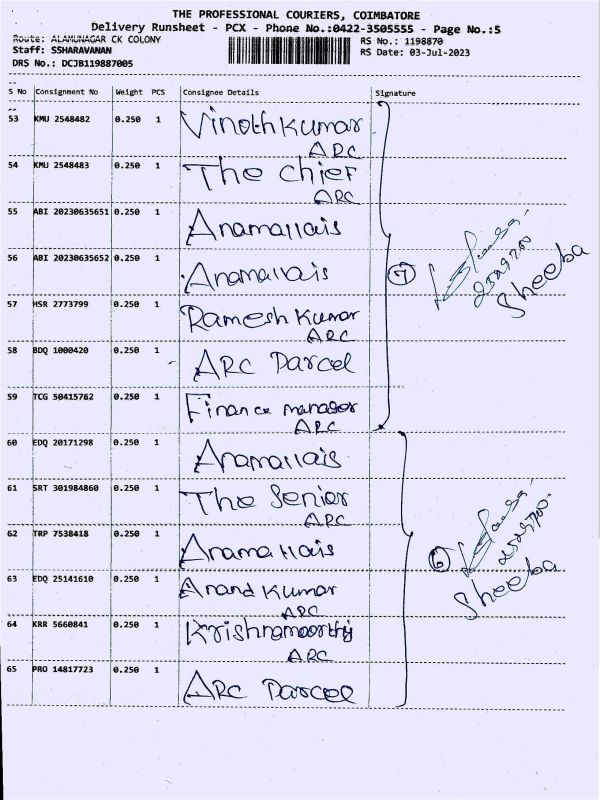 THE PROFESSIONAL COURIERS, COIMBATORE
Delivery Runsheet - PCX - Phone No.:0422-3505555 - Page No.:5
Route: ALAMUNAGAR CK COLONY
RS No.: 1198870
Staff: SSHARAVANAN
RS Date: 03-Jul-2023
DRS No.: DCJB119887005
S No Consignment No Weight PCS Consignee Details Signature
53 KMU 2548482 0.250 1 Vinoth Kumar
ARC
54 KMU 2548483 0.250 1 The Chief
ARC
55 ABI 20230635651 0.250 1 Anamallais
56 ABI 20230635652 0.250 1 Anamallais
7
Sheeba
57 HSR 2773799 0.250 1 Ramesh Kumar
ARC
58 BDQ 1000420 0.250 1 ARC Parcel
59 TCG 50415762 0.250 1 Finance manager
ARC
60 EDQ 20171298 0.250 1 Anamallais
61 SRT 301984860 0.250 1 The Senior
ARC
62 TRP 7538418 0.250 1 Anamallais
6
Sheeba
63 EDQ 25141610 0.250 1 Anand Kumar
ARC
64 KRR 5660841 0.250 1 Krishnamoorthy
ARC
65 PRO 14817723 0.250 1 ARC Parcel